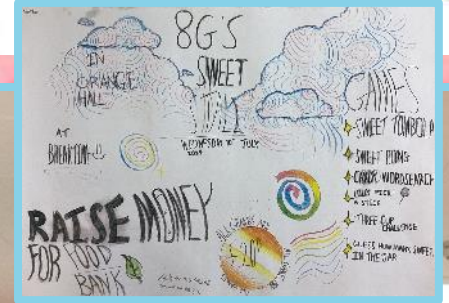 8G'S
SWEET
STALL
IN
ORANGE
HALL
WEDNESDAY 10TH JULY
AT
BREAKTIME
GAMES
SWEET TOMBOLA
SWEET PONG
CANDY WORDSEARCH
LOLLY PICK
A STICK
THREE CUP
CHALLENGE
GUESS HOW MANY SWEETS
IN THE JAR
RAISE MONEY
FOR FOOD
BANK
ALL GAMES ARE
20P